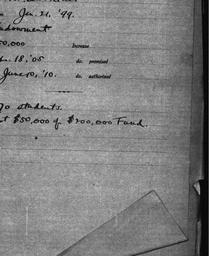 Jan. 21, '99.
Endowment
50,000 Increase
n. 18, '05 do. promised
June 10, '10. do. authorized
70 students.
t $50,000 of $200,000 Fund.